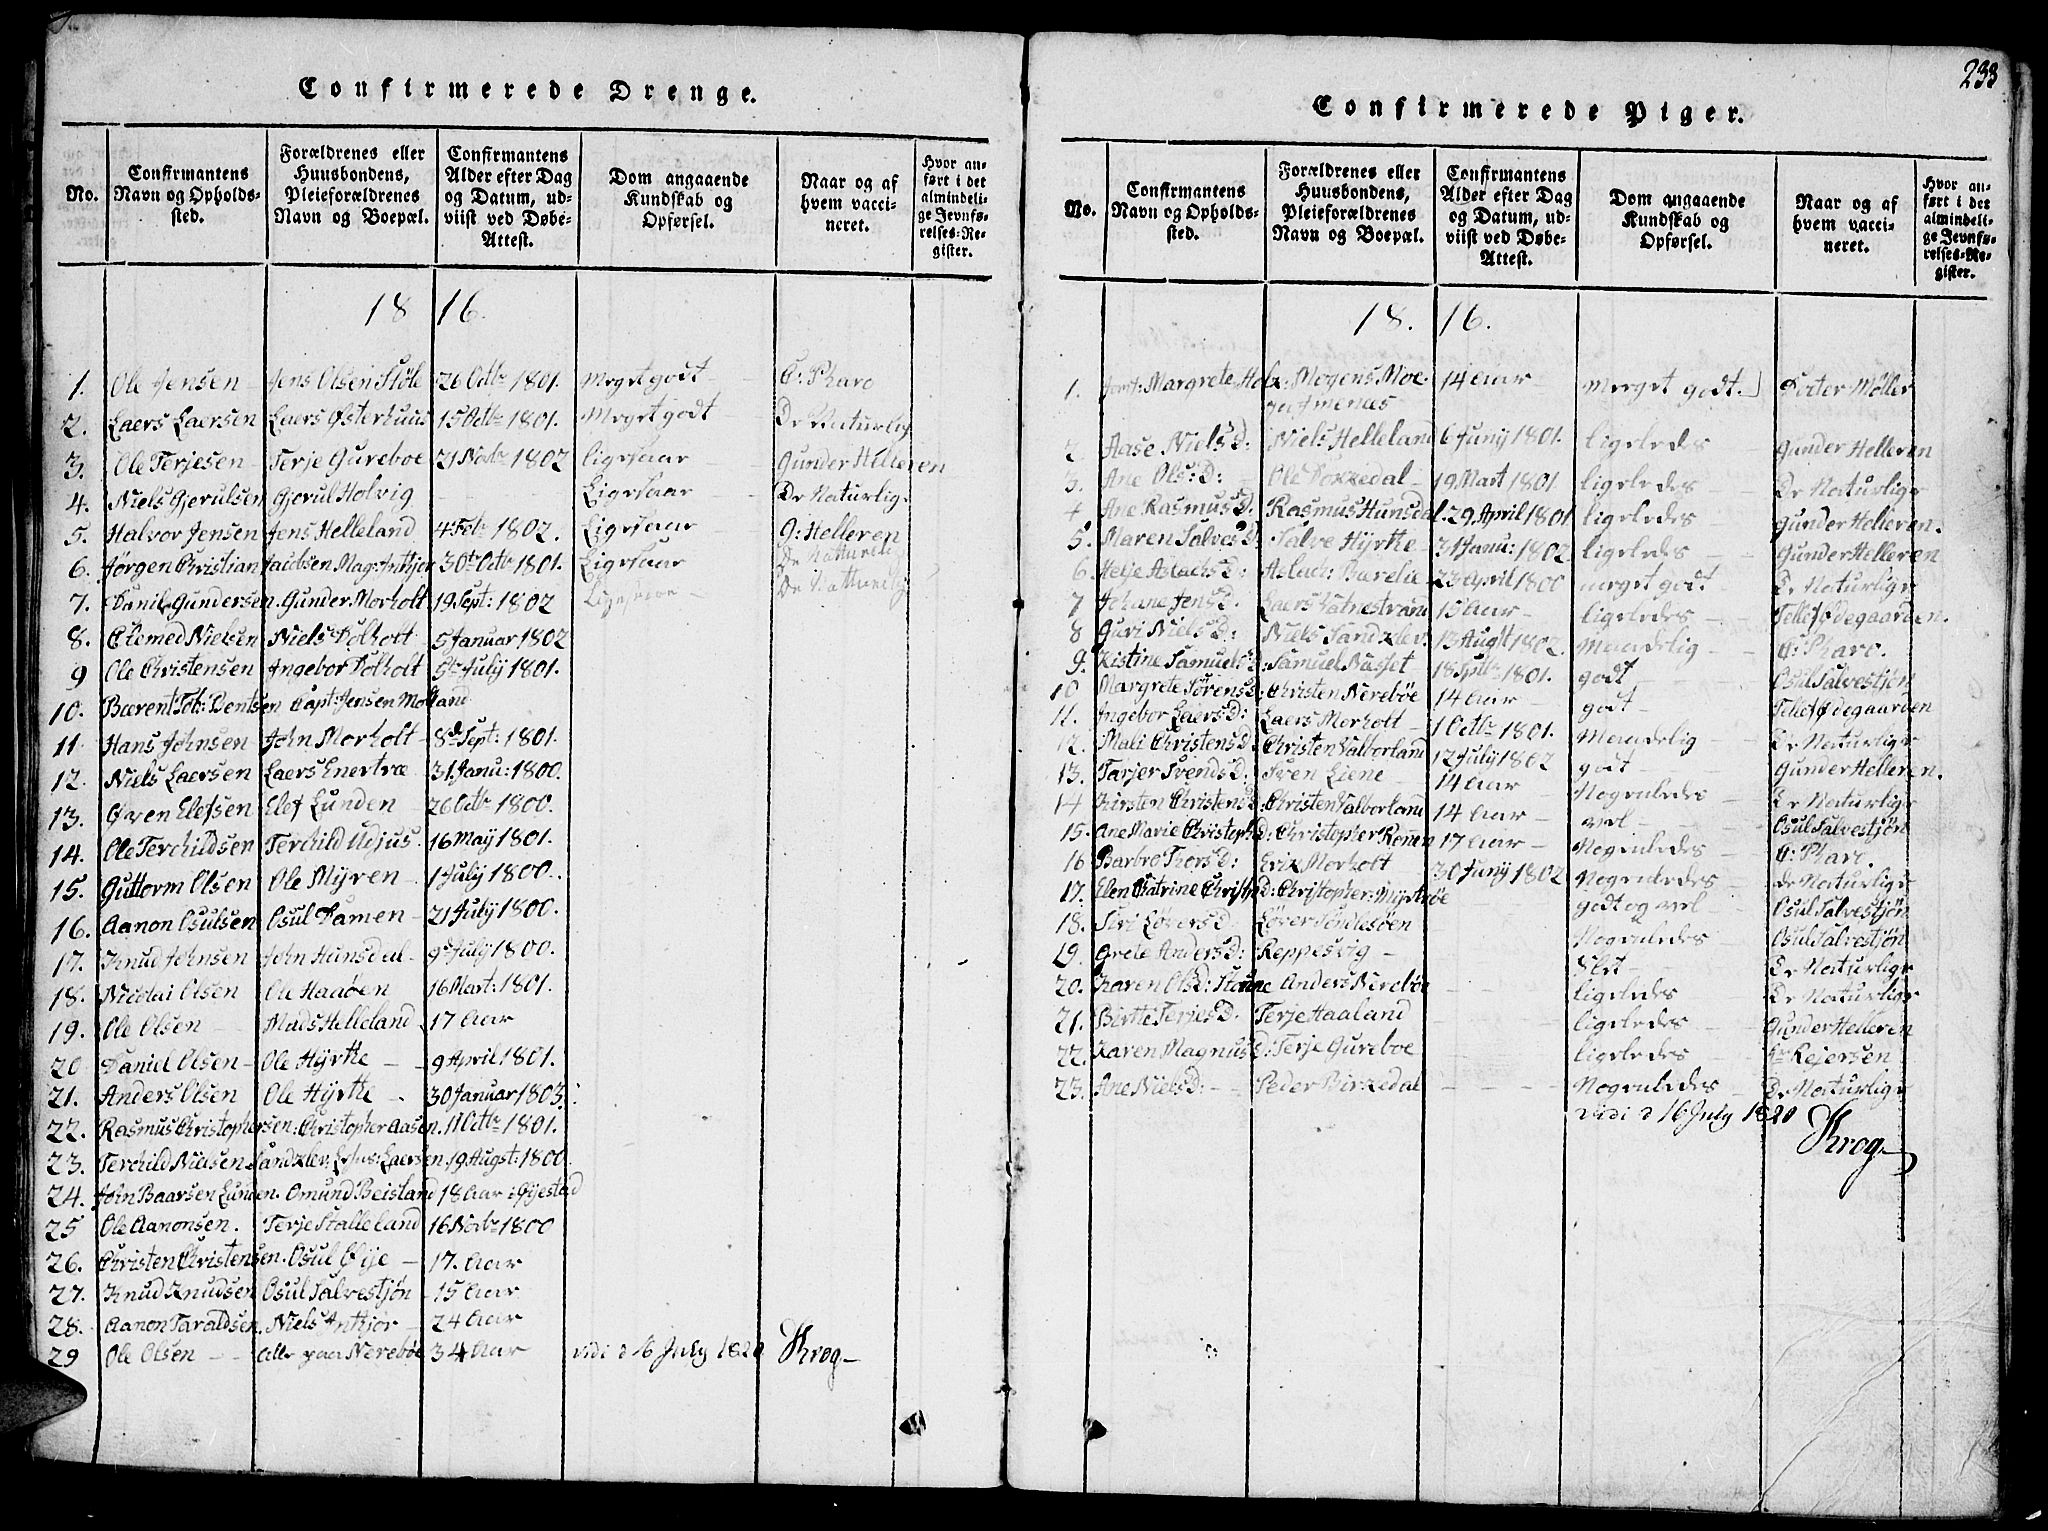 233
Confirmerede Drenge.
No.
Confirmantens Navn og Opholds-sted.
Forældrenes eller Huusbondens, Pleieforældrenes Navn og Boepæl.
Confirmantens Alder efter Dag og Datum, ud-viist ved Døbe-Attest.
Dom angaaende Kundskab og Opførsel.
Naar og af hvem vacci-neret.
Hvor an-ført i det almindeli-ge Jevnfø-relses-Re-gister.
18 16.
1. Ole Jensen – Jens Olsen Støle 26 Octbr 1801. Meget godt – C: Pharo
2. Laers Laersen Laers Østerhuus 15 Octbr 1801. Meget godt – De Naturlig
3. Ole Terjesen – Terje Gureboe 21 Novbr 1802 ligesaar – Gunder Helleren
4. Niels Gjerulsen Gjerul Holvig Ligesaar – De Naturlige
5. Halvor Jensen Jens Helleland 4 Febr 1802. Ligesaar G: Helleren
6. Jørgen Christian Jacobsen 30te Octbr 1801. Ligesaar De Natturlig
7. Danil Gundersen. Gunder Morholt 19 Sept: 1802 De Natturlig
8. Clemed Nielsen Niels Dolholt 5 Januar 1802
9 Ole Christensen Ingebor Dolholt 5te July 1801.
10. Bærent Bentsen Capt: Jensen Molland
11 Hans Johnsen John Morholt – 8de Sept: 1801.
12. Niels Laersen Laers Enertræ 31. Janu: 1800.
13. Øven Elefsen Elef Lunden – 26 Octbr 1800.
14. Ole Terchildsen Terchild Udjus. 16 May 1801.
15. Guttorm Olsen Ole Myren – 1 July 1800.
16. Aanon Osulsen Osul Damen – 21 July 1800.
17. Knud Johnsen John Hunsdal – 9de July 1800.
18. Nicolai Olsen Ole Haaøen 16 Mart: 1801.
19. Ole Olsen – Mads Helleland 17 Aar
20 Daniel Olsen – Ole Hÿrthe – 9 April 1801.
21. Anders Olsen Ole Hÿrthe – 30 Januar 1803.
22. Rasmus Christophersen: Christopher Aasen. 11 Octbr 1801.
23. Terchild Nielsen Sandklev: Laersen. 19 Augst: 1800.
24. John Baarsen Lunden. Omund Beisland 18 Aar i Øyestad
25 Ole Aanonsen. Terje Stalleland 16 Novbr 1800
26. Christen Christensen. Osul Øije – 17. Aar
27. Knud Knudsen Osul Salvestjøn 15 Aar
28. Aanon Taraldsen. Niels Inthjor – 24 Aar
29 Ole Olsen – – alle paa Nerebøe 34 Aar vidi d 16 July 1820 Krog –
Confirmerede Piger.
No.
Confirmantens Navn og Opholds-sted.
Forældrenes eller Huusbondens, Pleieforældrenes Navn og Boepæl.
Confirmantens Alder efter Dag og Datum, ud-viist ved Døbe-Attest.
Dom angaaende Kundskab og Opførsel.
Naar og af hvem vacci-neret.
Hvor an-ført i det almindeli-ge Jevnfø-relses-Re-gister.
18. 16.
1. Margrete Mogens Moe 14 Aar – Meget godt. Møller
2 Aase Niels D: Niels Helleland 6 Juny 1801. ligeledes – Gunder Helleren
3. Ane Ols: D: – Ole Dokkedal – 19 Mart 1801. ligeledes – De Naturlige
4 Ane Rasmus D. Rasmus Hunsdal. 29 April 1801. ligeledes – Gunder Helleren.
5. Maren Salves D: Salve Hÿrthe – 31 Janu: 1802. ligeledes – Gunder Helleren
6. Helje Aslachs D: Aslach: Barelie 23 April 1800 meget godt – De Naturlige
7 Johane Jens D. Laers Valvestrand 15 Aar – ligeledes – Tellef Ødegaarden.
8 Guri Niels D: Niels Sandklev: 13 Augst 1802. Maadelig – C: Pharo.
9. Kistine Samuels D: Samuel Nasset – 18 Sptbr 1801. godt – Osul Salvestjøn
10 Margrete Sørens D: Christen Nerebøe 14 Aar – godt – Tellef Ødegaarden
11. Ingebor Laers D: Laers Morholt – 1 Octbr 1801. Maadelig – De Naturlige
12. Mali Christens D. Christen Valborland 12 July 1802 godt – Gunder Helleren.
13. Tarjer Svends D. Sven Liene 14 Aar – Nogenledes – De Naturlige
14 Kirsten Christens D: Christen Valborland 14 Aar – vel – Osul Salvestjøn
15. Ane Marie Christoph D: Christopher Rønnen 17 Aar – Nogenledes – C: Pharo.
16 Barbro Thors D: Erik Morholt – 30 Juny 1802 Nogenledes – De Naturlige
17. Elen Catrine Christn D: Christopher: Myrebøe godt og vel – Osul Salvestjøn
18. Siri Løvers D. Løver Sÿndlesøen Nogenledes – Osul Salvestjøn
19. Grete Anders D: Reppesvig – Slet – De Naturlige
20. Karen Ols D: Anders Nerebøe ligeledes – De Naturlige
21. Birthe Terjes D. Terje Haaland ligeledes – Gunder Helleren
22. Karen Magnus D: Terje Gureboe ligeledes – Hr Rejersen
23. Ane Niels D: – Peder Birkedal – – – Nogenledes – De Naturlige
vidi d 16 July 1820
Krog –